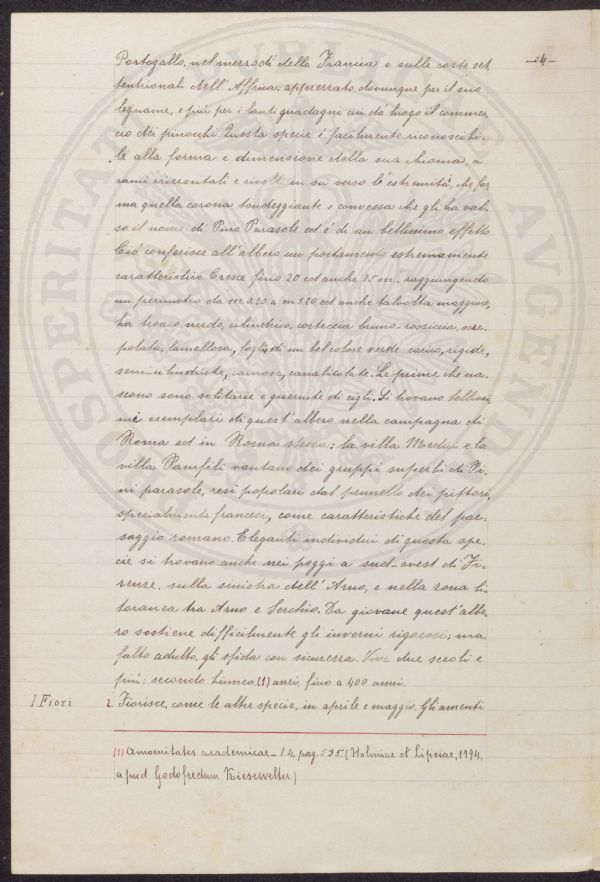 -54-
Portogallo, nel mezzodì della Francia e sulle coste set
tentrionali dell'Affrica: apprezzato dovunque per il suo
legname, e più per i lauti guadagni cui dà luogo il commer
cio dei pinocchi. Questa specie è facilmente riconoscibi-
le alla forma e dimensione della sua chioma, a
rami orizzontali e rivolti in su verso l'estremità, che for
ma quella corona tondeggiante e convessa che gli ha val-
so il nome di Pino Parasole ed è di un bellissimo effetto
Ciò conferisce all'albero un portamento estremamente
caratteristico. Cresce fino 20 ed anche 25 m. raggiungendo
un perimetro da m. 0.50 a m. 1.20 ed anche talvolta maggiore,
ha tronco nudo, cilindrico, corteccia bruno-rossiccia, scre-
polata, lamellosa, foglie di un bel colore verde carico, rigide,
semicilindriche, carnose, canalicolate. Le prime che na-
scono sono solitarie e guernite di cigli. Si trovano bellissi
mi esemplari di quest'albero nella campagna di
Roma ed in Roma stessa: la villa Medici e la
villa Pamfili vantano dei gruppi superbi di Pi-
ni parasole, resi popolari dal pennello dei pittori,
specialmente francesi, come caratteristiche del pae-
saggio romano. Eleganti individui di questa spe-
cie si trovano anche nei poggi a sud-ovest di Fi-
renze, sulla sinistra dell'Arno, e nella zona li-
toranea tra Arno e Serchio. Da giovane quest'albe-
ro sostiene difficilmente gli inverni rigorosi; ma
fatto adulto, gli sfida con sicurezza. Vive due secoli e
più: secondo Linneo (1) anzi, fino a 400 anni.
I Fiori 2. Fiorisce, come le altre specie, in aprile e maggio. Gli amenti
(1) Amoenitates academicae - t. 4. pag. 525 (Holmiae et Lipsiae, 1794,
apud Godofredum Kiesewetter)
PROSPERITATI PUBLICAE AUGENDAE